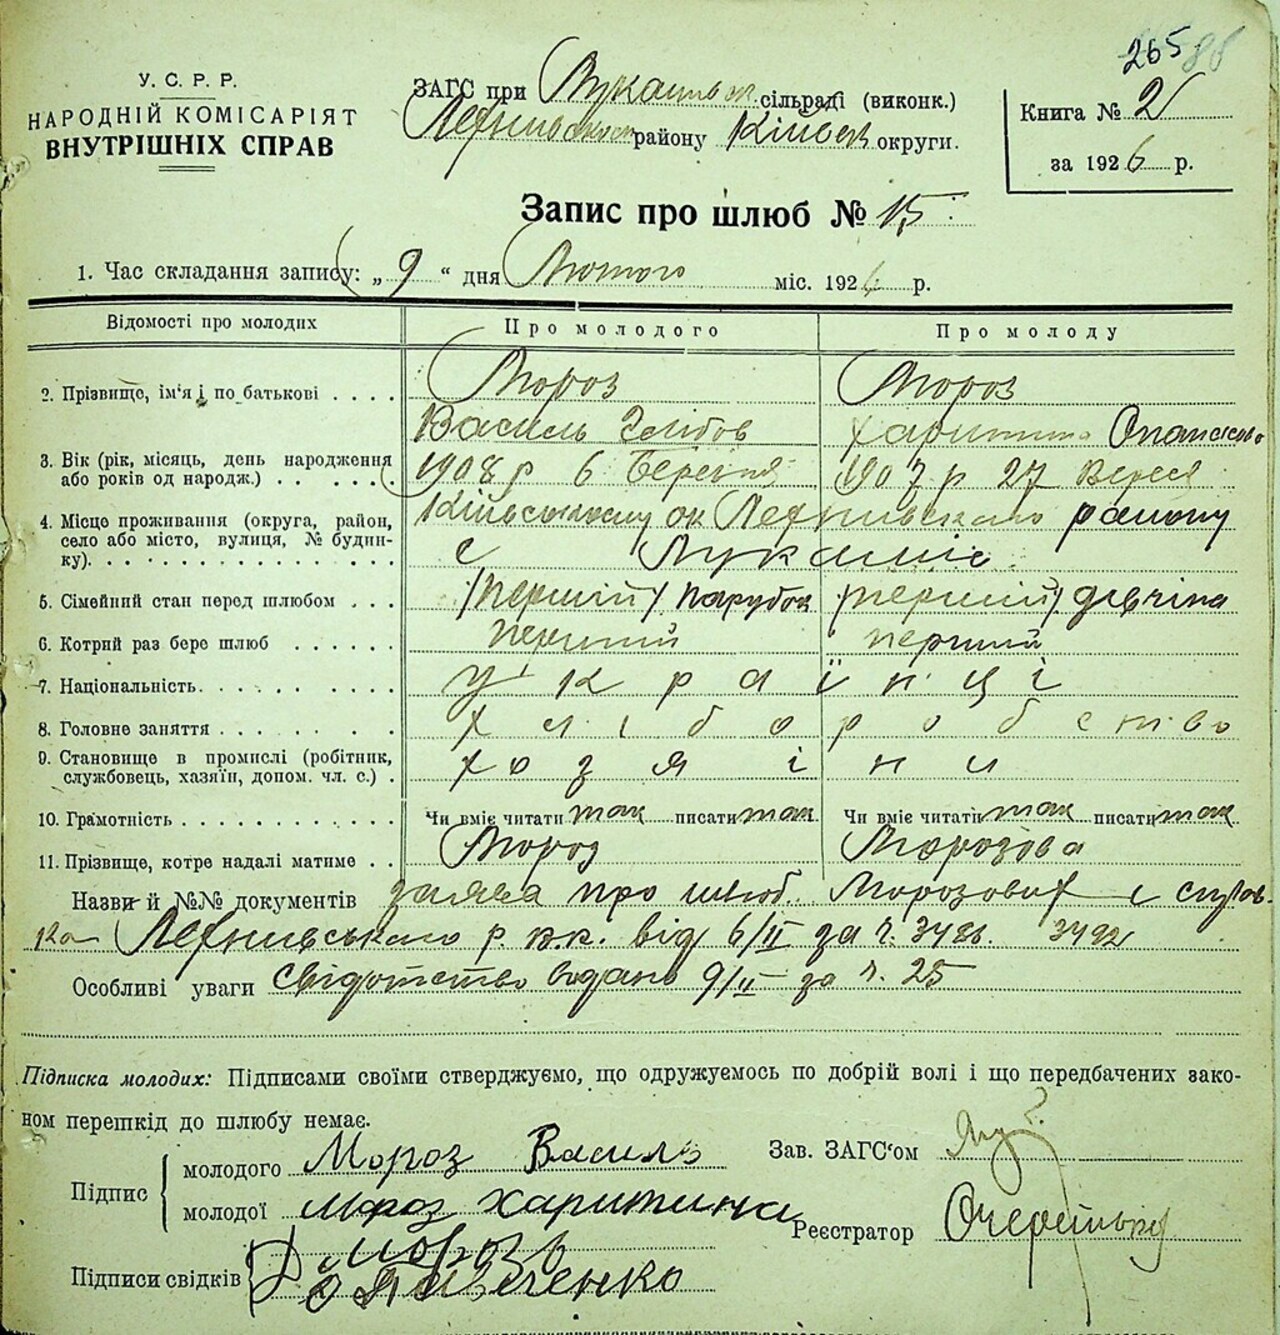 265
У. С. Р. Р.
НАРОДНІЙ КОМІСАРІЯТ
ВНУТРІШНІХ СПРАВ
ЗАГС при сільраді (виконк.)
району Київськ округи.
Книга № 2
за 1926 р.
Запис про шлюб № 15
1. Час складання запису: „ 9 “ дня Лютого міс. 1926 р.
Відомості про молодих Про молодого Про молоду
2. Прізвище, ім‘я і по батькові . . . . Мороз Мороз
Василь Глібов Харитина Опанасово
3. Вік (рік, місяць, день народження 1908 р 6 Березня 1907 р 27 Вересня
або років од народж.) . . . . . . .
4. Місце проживання (округа, район, району
село або місто, вулиця, № будин- с Лукаші
ку). . . . . . . . . . . . . . . .
5. Сімейний стан перед шлюбом . . . /перший/ парубок /перший/ дівчина
6. Котрий раз бере шлюб . . . . . . перший перший
7. Національність. . . . . . . . . . українці
8. Головне заняття . . . . . . . . хліборобство
9. Становище в промислі (робітник, хозяіни
службовець, хазяїн, допом. чл. с.) .
10. Грамотність . . . . . . . . . . . . Чи вміє читати так писати так Чи вміє читати так писати так
11. Прізвище, котре надалі матиме . . Мороз Морозова
Назви й №№ документів заява про шлюб Морозових і
р. в.к. від 6/II за ч. 3486. 3492
Особливі уваги Свідотство видано 9/II за ч. 25
Підписка молодих: Підписами своїми стверджуємо, що одружуємось по добрій волі і що передбачених зако-
ном перешкід до шлюбу немає.
Підпис
молодого Мороз Василь
Зав. ЗАГС‘ом
молодої Мороз Харитина
Реєстратор
Підписи свідків
Мороз